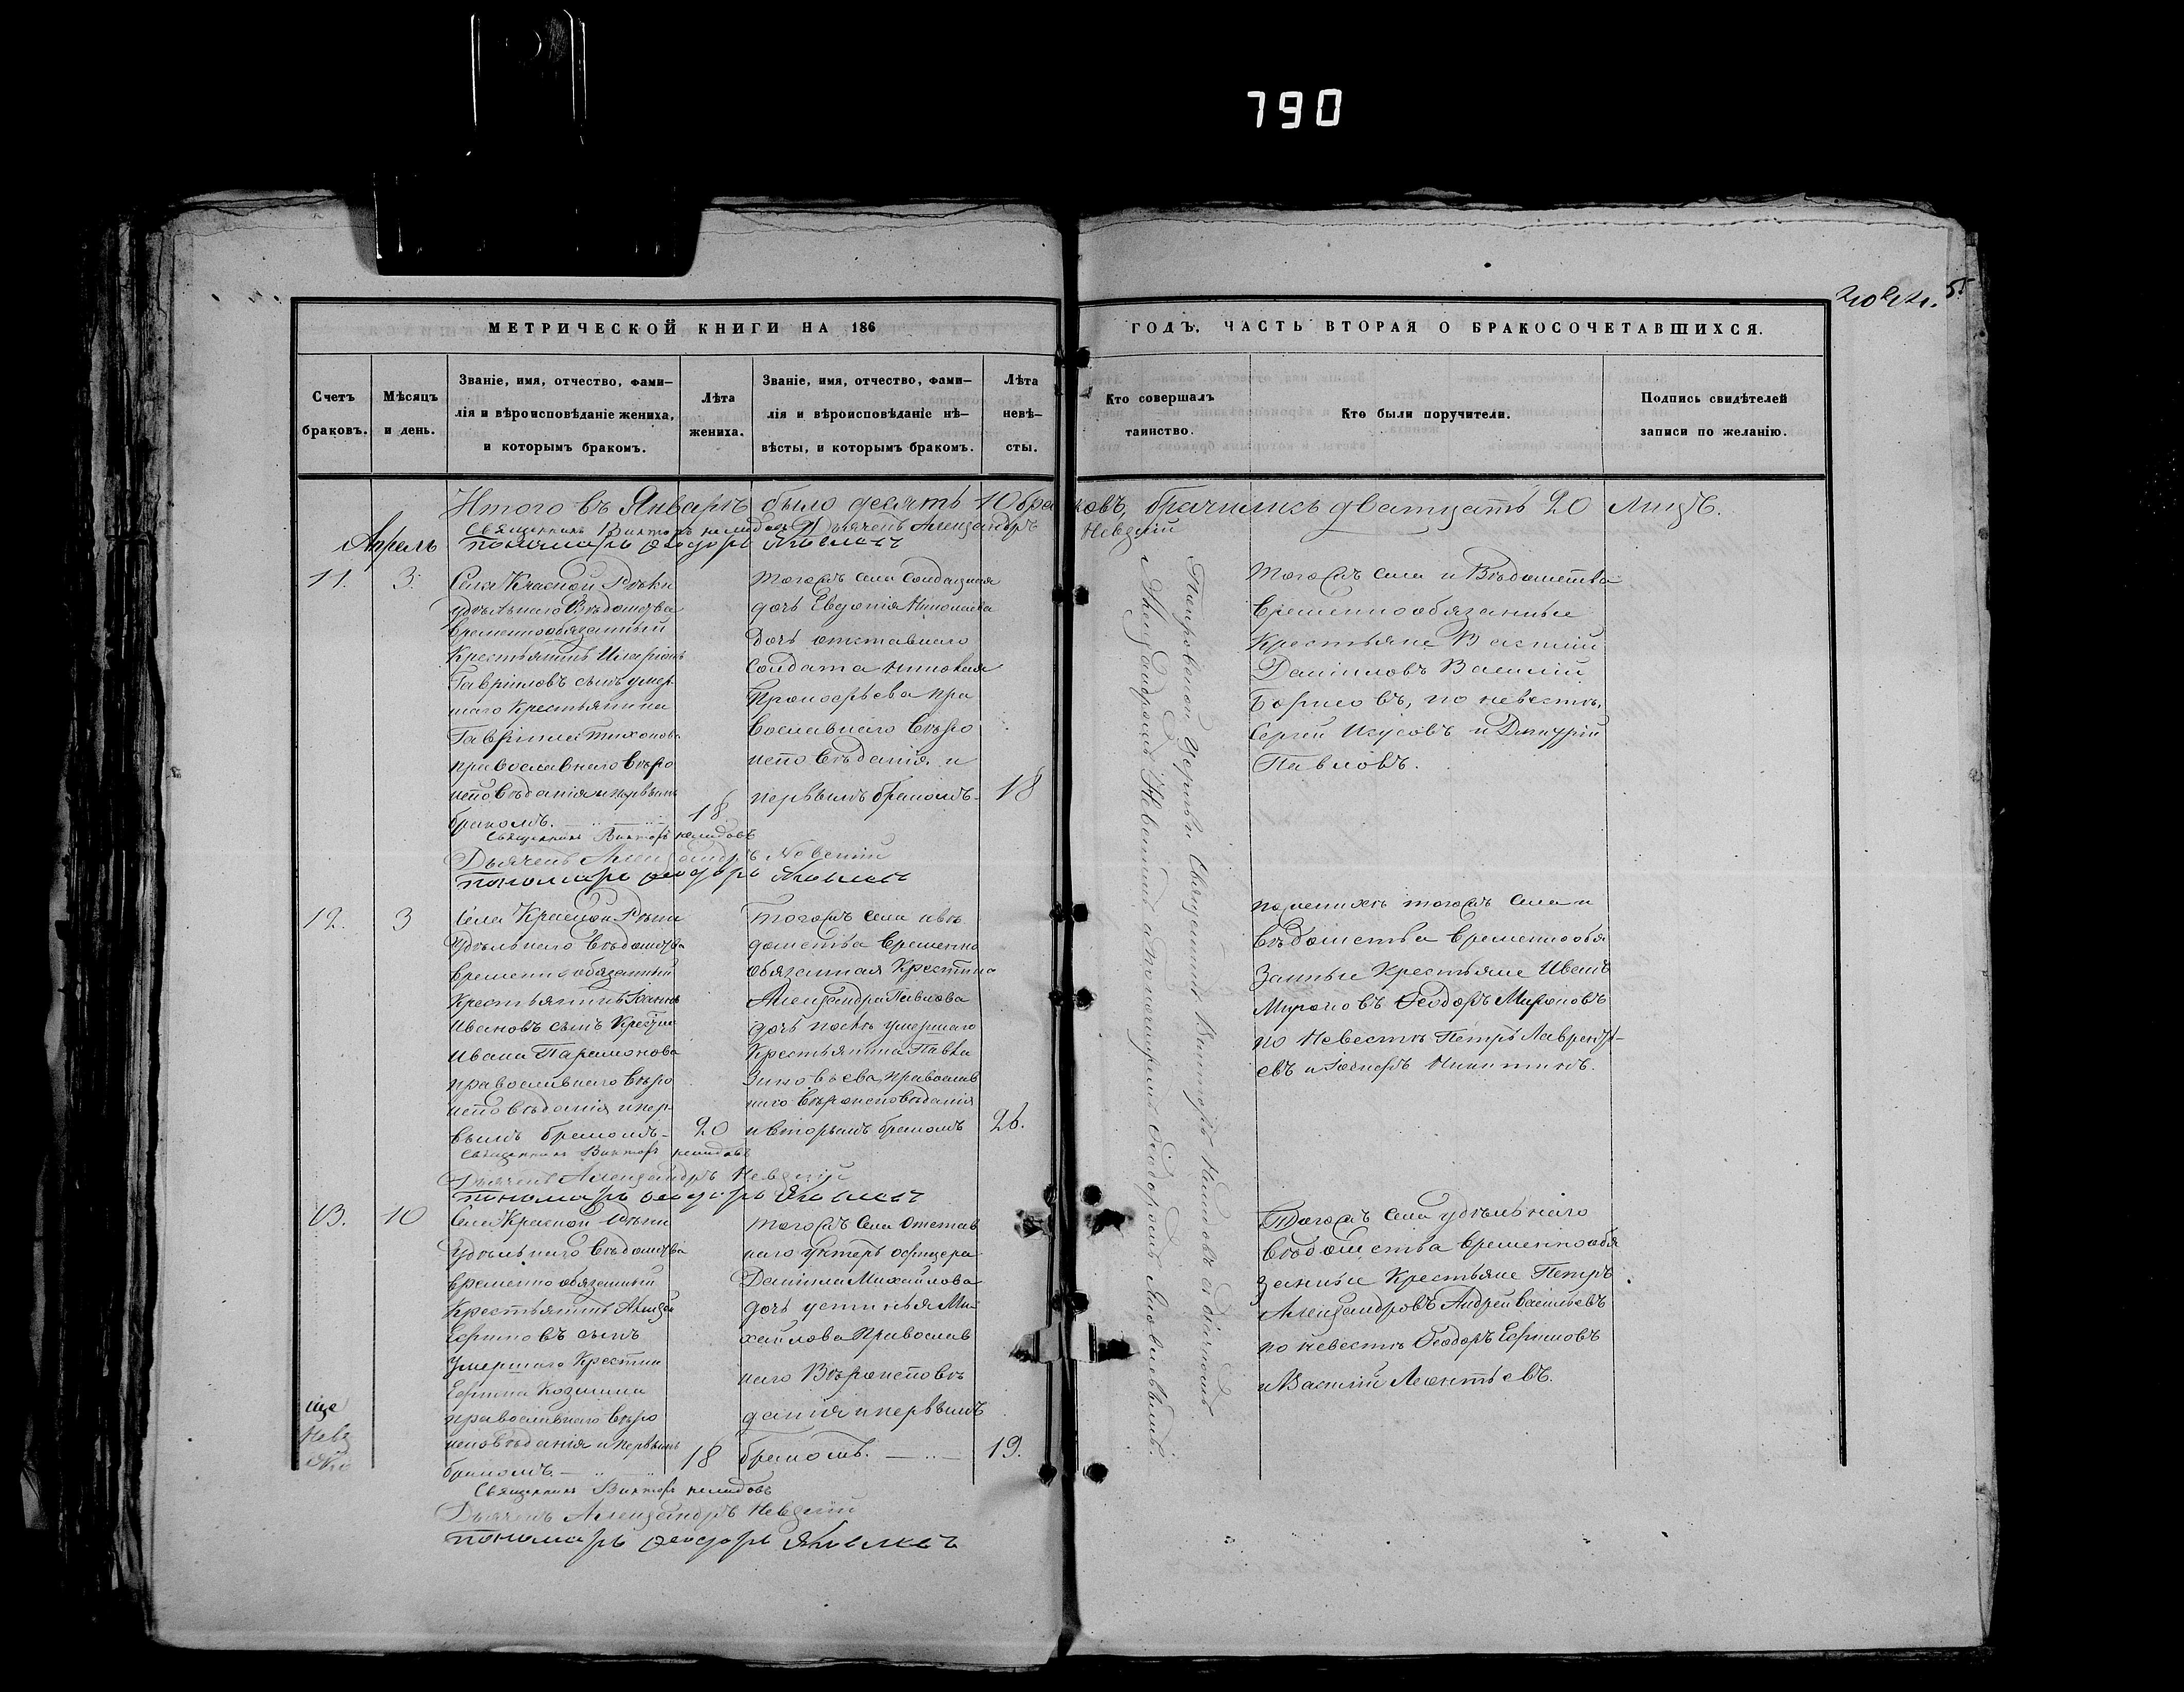 790
МЕТРИЧЕСКОЙ КНИГИ НА 186
ГОДЪ, ЧАСТЬ ВТОРАЯ О БРАКОСОЧЕТАВШИХСЯ.
Счетъ браковъ.
Мѣсяцъ и день.
Званіе, имя, отчество, фами-
лія и вѣроисповѣданіе жениха,
и которымъ бракомъ.
Лѣта жениха.
Званіе, имя, отчество, фами-
лія и вѣроисповѣданіе нѣ-
вѣсты, и которымъ бракомъ.
Лѣта невѣ-
сты.
Кто совершалъ таинство.
Кто были поручители.
Подпись свидѣтелей
записи по желанію.
Итого въ Январѣ было десять 10 браковъ, брачились дватцать 20 лицъ.
Священникъ Викторъ Дьячекъ Александръ Невскій
Апрель пономарь Феодоръ
11. 3.
Села Красной Рѣки
удѣльнаго Вѣдомства
временнообязанный
Крестьянинъ Иларіонъ
Гавриловъ сынъ умер
шаго Крестьянина
Гавріила Тихонова
православнаго вѣро
исповѣданія и первымъ
бракомъ. 18
Тогожъ села солдатская
дочь Евдокія Николаева
дочь отставнаго
солдата Николая
Прокофьева пра
вославнаго вѣро
исповѣданія и
первымъ бракомъ 18
Тогожъ села и Вѣдомства
временнообязанные
Крестьяне Василій
Даниловъ Василій
Борисовъ, по невестѣ,
Сергей и Димитрій
Павловъ.
Священникъ Викторъ
Дьячекъ Александръ Невскій
пономарь Феодоръ
12. 3
Села Красной Рѣки
Удѣльнаго вѣдомства
временнообязанный
Крестьянинъ Іоаннъ
Ивановъ сынъ
Ивана Парамонова
православнаго вѣро
исповѣданія и пер-
вымъ бракомъ 20
Тогожъ села и вѣ
домства временно
обязанная
Александра Павлова
дочь умершаго
Крестьянина Павла
Зиновьева православ
наго вѣроисповѣданія
и вторымъ бракомъ 26.
по женихѣ тогожъ села и
вѣдомства временнообя
занные Крестьяне Иванъ
Мироновъ Феодоръ Мироновъ
по невестѣ Петръ Лаврентъ-
евъ и Никитинъ.
Священникъ Викторъ
Дьячекъ Александръ Невскій
пономарь Феодоръ
13. 10
Села Красной Рѣки
Удѣльнаго вѣдомства
временнообязанный
Крестьянинъ
Ефимовъ сынъ
Умершаго
Ефима Козмина
православнаго вѣро
исповѣданія и первымъ
бракомъ. 18
Тогожъ села отстав
наго унтеръ офицера
Даніила Михайлова
дочь Устинья Ми-
хайлова православ
наго Вѣроисповѣ
данія и первымъ
бракомъ. 19.
Тогожъ села удѣльнаго
вѣдомства временнообя
занные Крестьяне Петръ
Александровъ Андрей Васильевъ
по невестѣ Феодоръ Ефимовъ
и Василій Леонтьевъ.
Священникъ Викторъ
Дьячекъ Александръ Невскій
пономарь Феодоръ